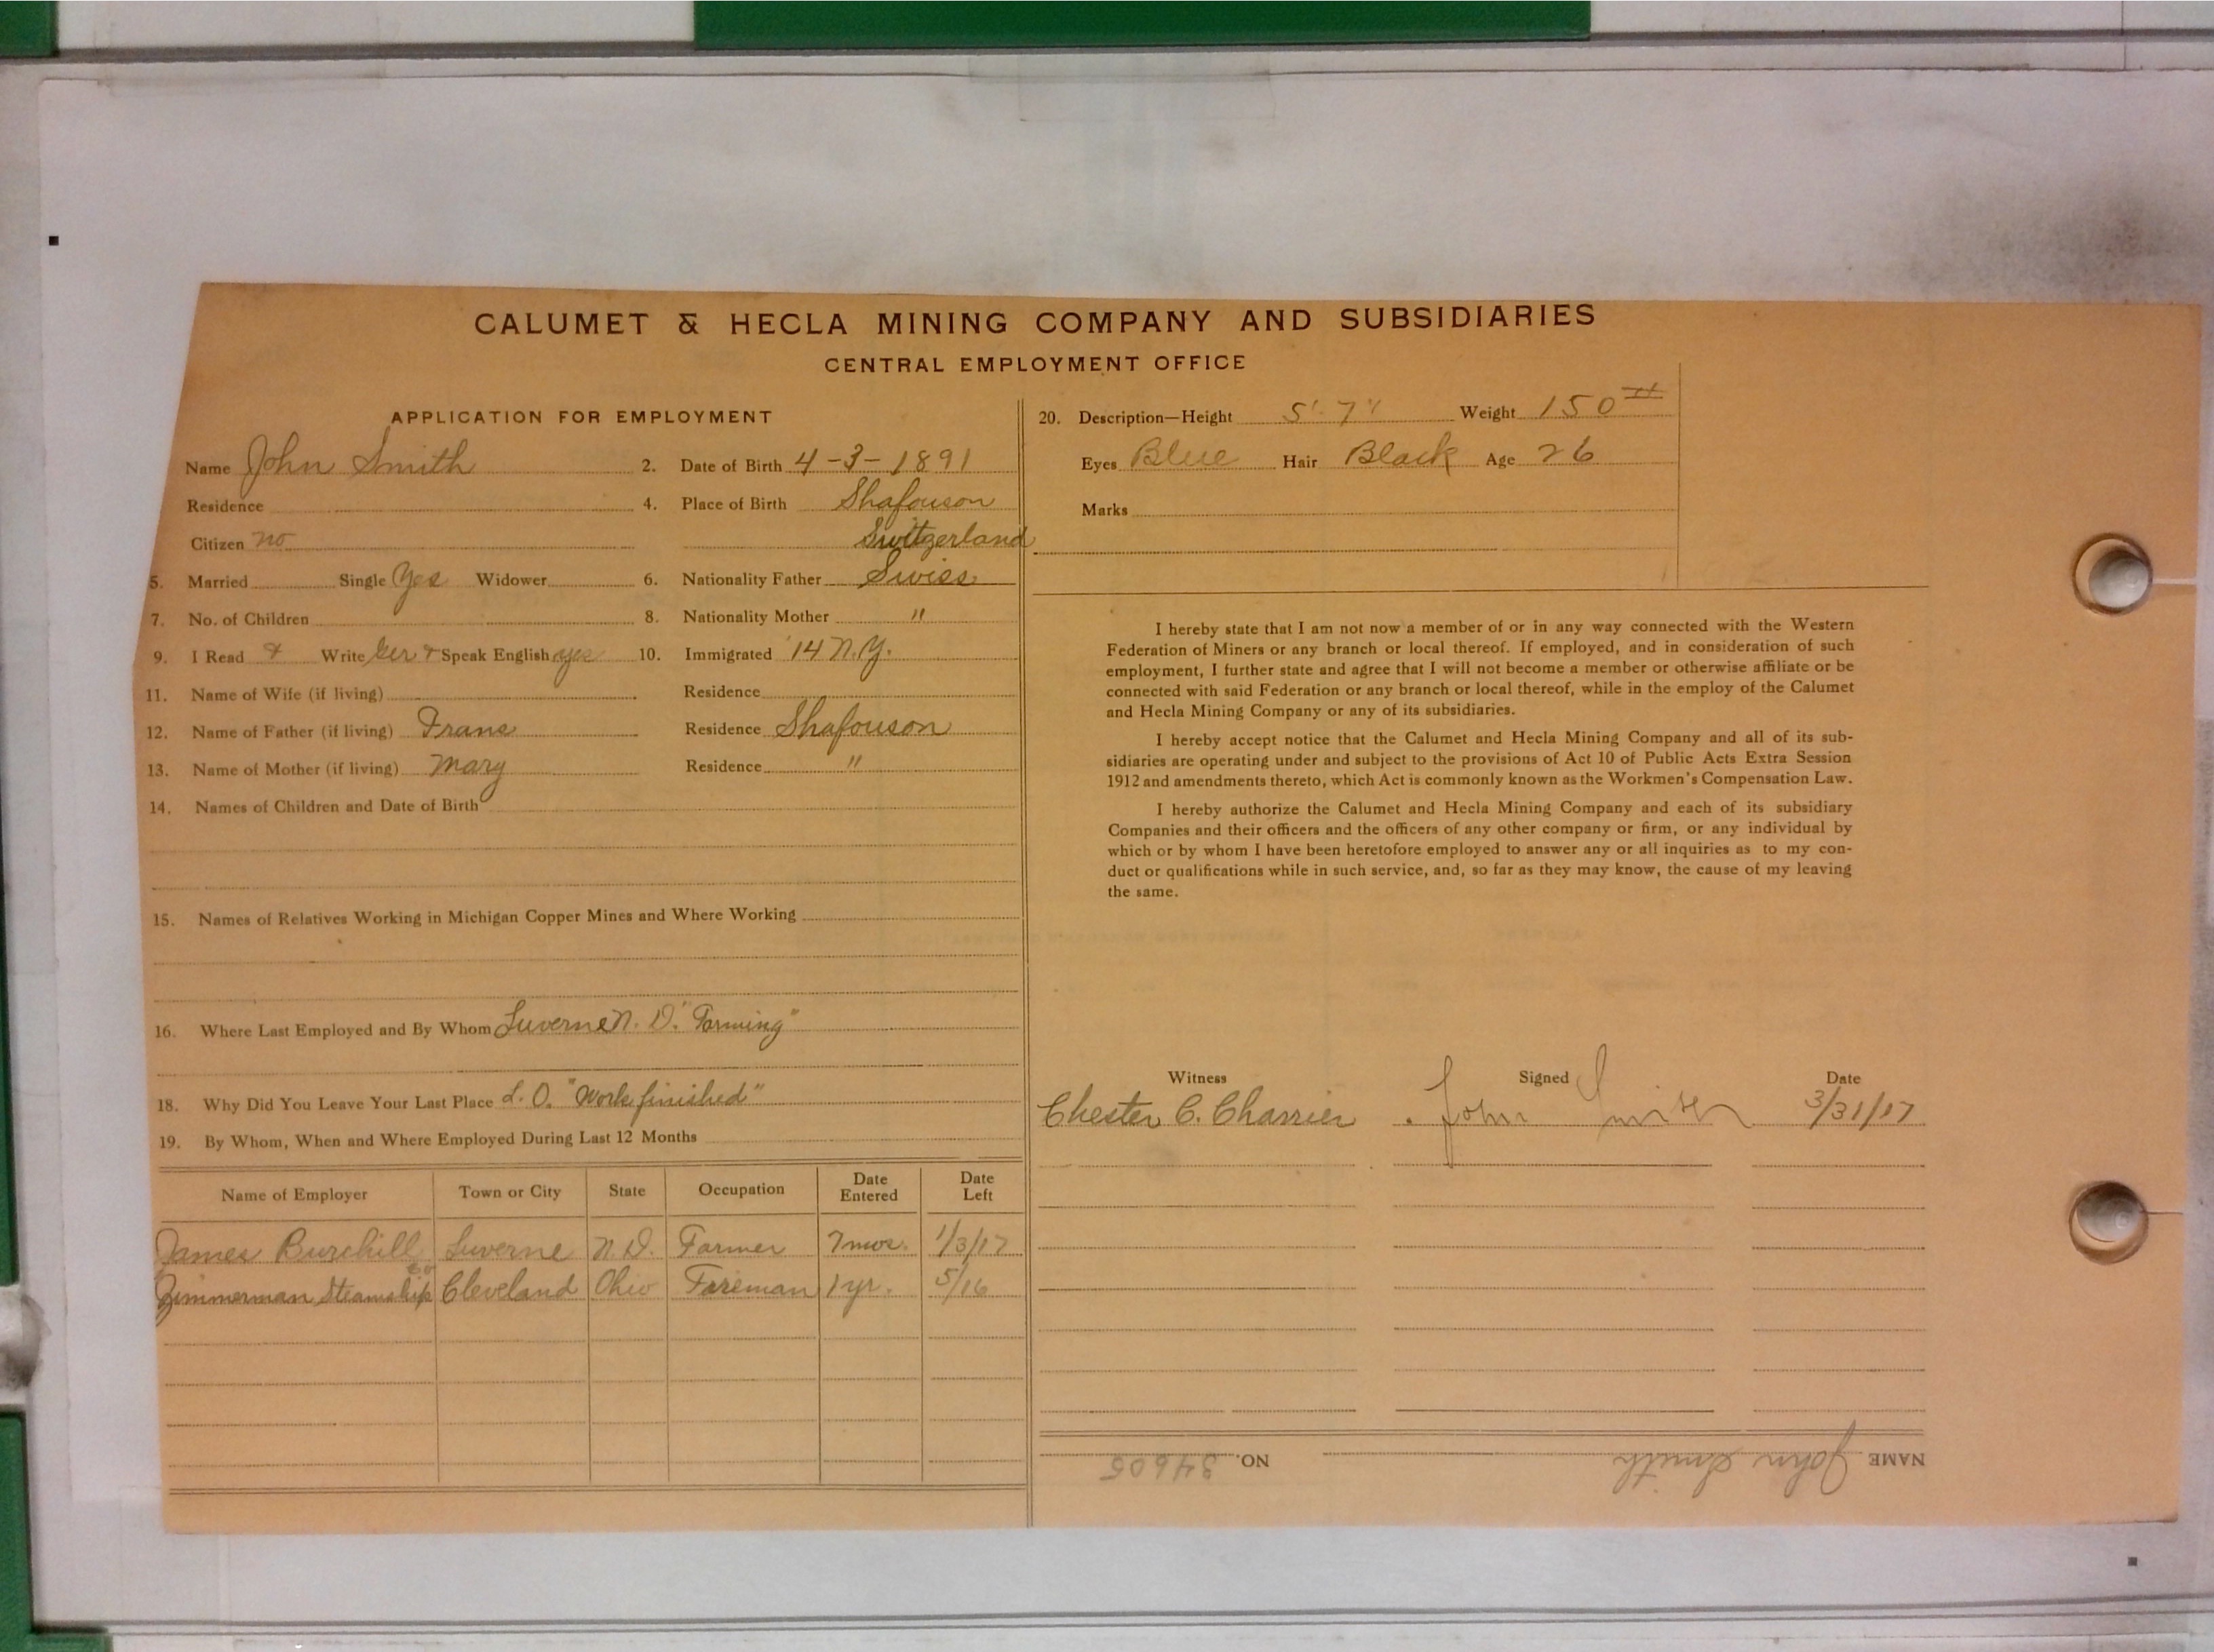 CALUMET & HECLA MINING COMPANY AND SUBSIDIARIES
CENTRAL EMPLOYMENT OFFICE
APPLICATION FOR EMPLOYMENT
Name John Smith 2. Date of Birth 4-3-1891
Residence 4. Place of Birth Shafouson
Citizen no Switzerland
5. Married Single Yes Widower 6. Nationality Father Swiss
7. No. of Children 8. Nationality Mother "
9. I Read & Write Ger & Speak English yes 10. Immigrated '14 N.Y.
11. Name of Wife (if living) Residence
12. Name of Father (if living) Frans Residence Shafouson
13. Name of Mother (if living) Mary Residence "
14. Names of Children and Date of Birth
15. Names of Relatives Working in Michigan Copper Mines and Where Working
16. Where Last Employed and By Whom Luverne N. D. "Farming"
18. Why Did You Leave Your Last Place L. O. "Work finished"
19. By Whom, When and Where Employed During Last 12 Months
Name of Employer Town or City State Occupation Date Entered Date Left
James Burchill Luverne N.D. Farmer 7 mos. 1/3/17
Zimmerman Steamship Co Cleveland Ohio Foreman 1 yr. 5/16
20. Description—Height 5' 7" Weight 150 #
Eyes Blue Hair Black Age 26
Marks
I hereby state that I am not now a member of or in any way connected with the Western
Federation of Miners or any branch or local thereof. If employed, and in consideration of such
employment, I further state and agree that I will not become a member or otherwise affiliate or be
connected with said Federation or any branch or local thereof, while in the employ of the Calumet
and Hecla Mining Company or any of its subsidiaries.
I hereby accept notice that the Calumet and Hecla Mining Company and all of its sub-
sidiaries are operating under and subject to the provisions of Act 10 of Public Acts Extra Session
1912 and amendments thereto, which Act is commonly known as the Workmen's Compensation Law.
I hereby authorize the Calumet and Hecla Mining Company and each of its subsidiary
Companies and their officers and the officers of any other company or firm, or any individual by
which or by whom I have been heretofore employed to answer any or all inquiries as to my con-
duct or qualifications while in such service, and, so far as they may know, the cause of my leaving
the same.
Witness Signed Date
Chester C. Charrier John Smith 3/31/17
NAME John Smith NO. 34605